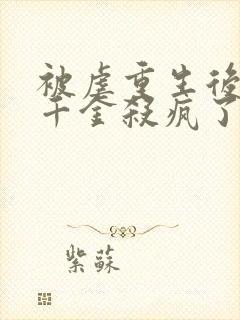 被虐重生後
千金殺瘋了
紫蘇